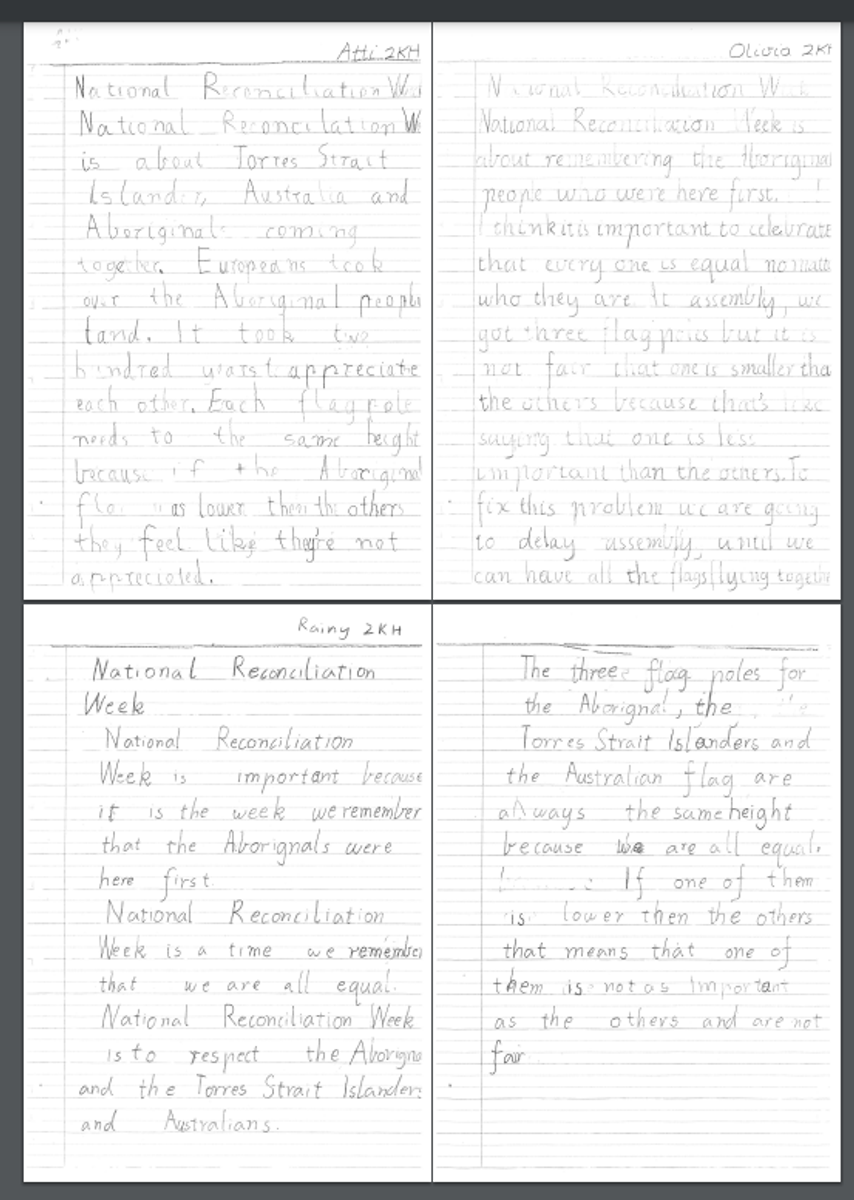 Atti 2KH
National Reconciliation
National Reconcilation W
is about Torres Strait
Islander, Australia and
Aboriginals coming
together. Europeans took
over the Aboriginal people
land. It took two
hundred years t appreciate
each other. Each flag pole
needs to the same height
because if the Aboriginal
flag was lower then the others
they feel like they're not
appreciated.
Olivia 2KH
National Reconciliation Week
National Reconciliation Week is
about remembering the Aboriginal
people who were here first.
I think it is important to celebrate
that every one is equal no matte
who they are. It assembly, we
got three flag poles but it is
not fair that one is smaller tha
the others because that's like
saying that one is less
important than the others. To
fix this problem we are going
to delay assembly, until we
can have all the flags flying togethe
Rainy 2KH
National Reconciliation
Week
National Reconciliation
Week is important because
it is the week we remember
that the Aborignals were
here first.
National Reconciliation
Week is a time we remember
that we are all equal.
National Reconciliation Week
is to respect the Aborigna
and the Torres Strait Islanders
and Australians.
The three flag poles for
the Aborignal, the
Torres Strait Islanders and
the Australian flag are
always the same height
because we are all equal.
If one of them
is lower then the others
that means that one of
them is not as important
as the others and are not
fair